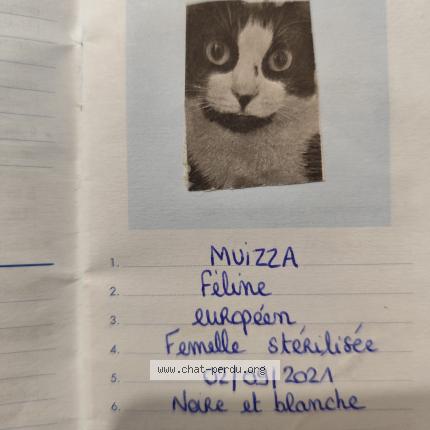 1. MUIZZA
2. féline
3. européen
4. Femelle stérilisée
www.chat-perdu.org
5. 02/09/2021
6. Noire et blanche